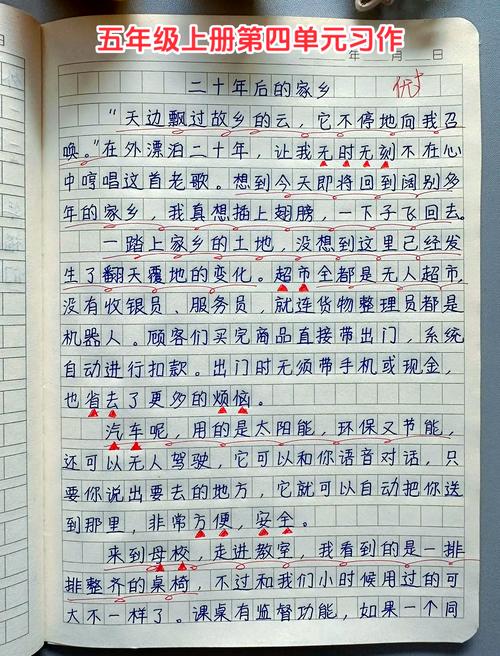 五年级上册第四单元习作
年 月 日
二十年后的家乡 优+
“天边飘过故乡的云，它不停地向我召
唤。”在外漂泊二十年，让我无时无刻不在心
中哼唱这首老歌。想到今天即将回到阔别多
年的家乡，我真想插上翅膀，一下子飞回去。
一踏上家乡的土地，没想到这里已经发
生了翻天覆地的变化。超市全都是无人超市，
没有收银员、服务员，就连货物整理员都是
机器人。顾客们买完商品直接带出门，系统
自动进行扣款。出门时无须带手机或现金，
也省去了更多的烦恼。
汽车呢，用的是太阳能，环保又节能，
还可以无人驾驶，它可以和你语音对话，只
要你说出要去的地方，它就可以自动把你送
到那里，非常方便，安全。
来到母校，走进教室，我看到的是一排
排整齐的桌椅，不过和我们小时候用过的可
大不一样了。课桌有监督功能，如果一个同